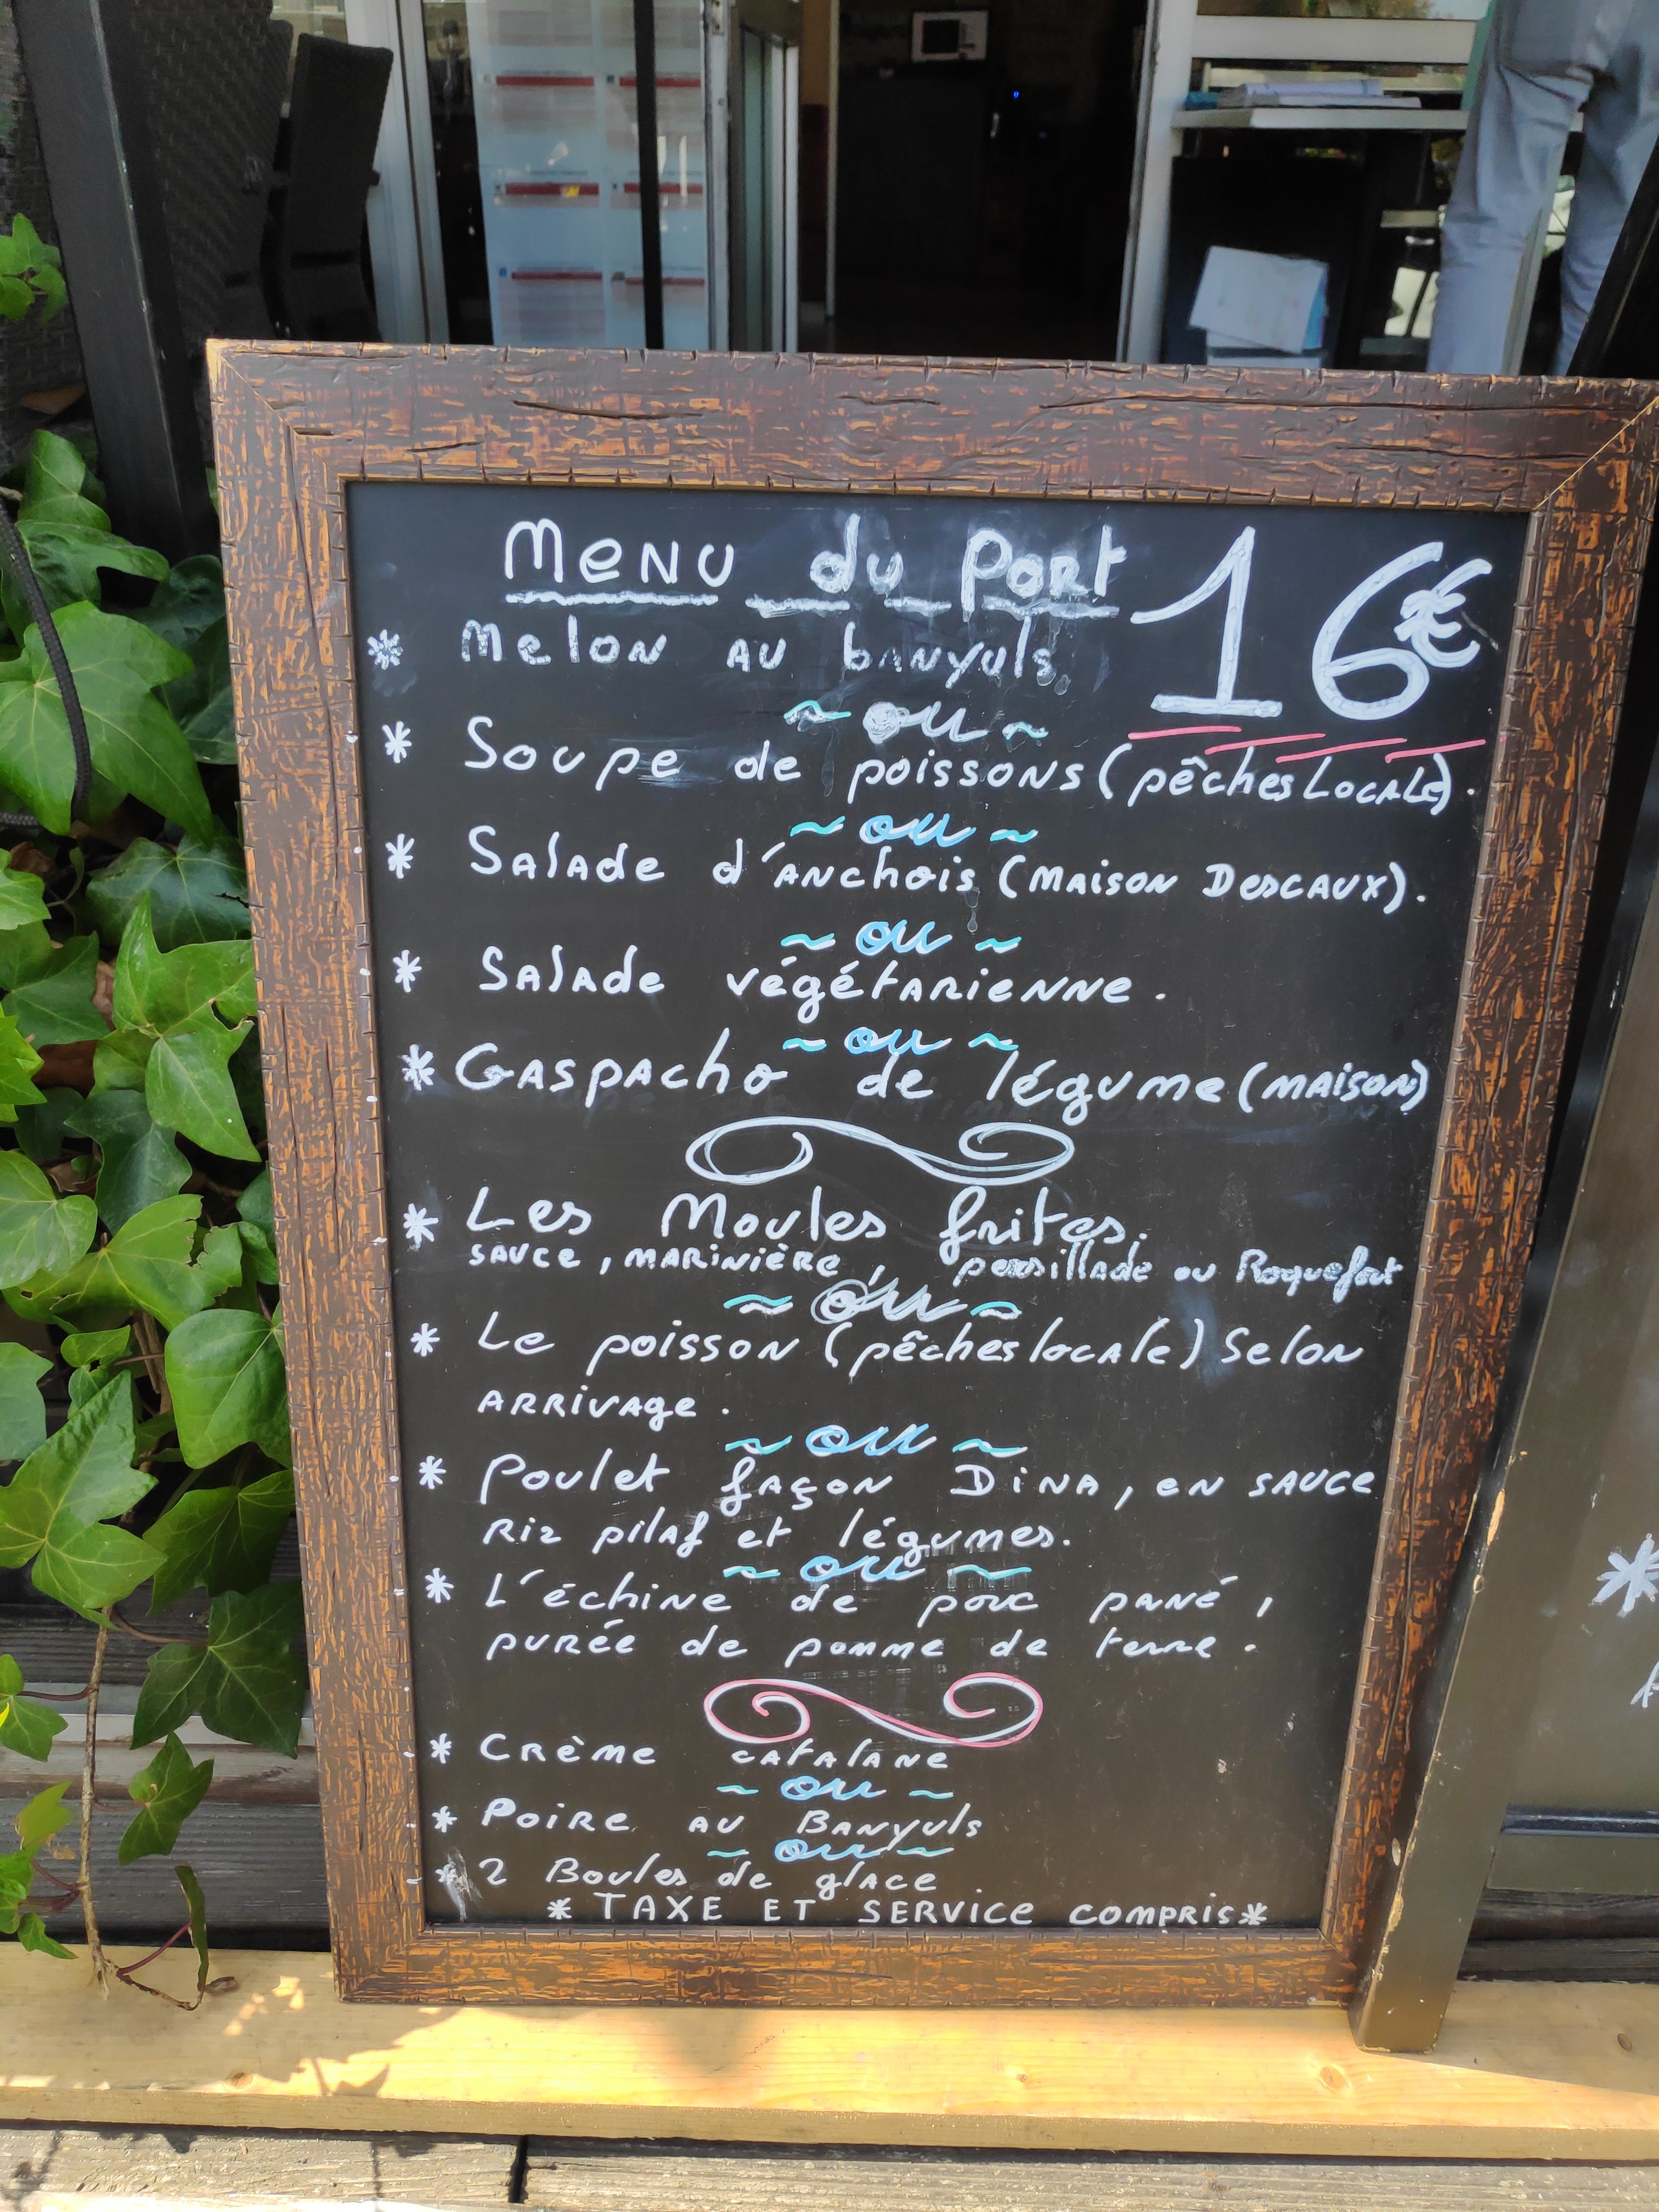 Menu du Port 16€
* Melon au banyuls
~ ou ~
* Soupe de poissons (pêches Locale).
~ ou ~
* Salade d'anchois (Maison Descaux).
~ ou ~
* Salade végétarienne.
~ ou ~
* Gaspacho de légume (maison)
* Les Moules frites.
sauce, marinière, persillade ou Roquefort
~ ou ~
* Le poisson (pêches locale) Selon
arrivage.
~ ou ~
* Poulet façon Dina, en sauce
Riz pilaf et légumes.
~ ou ~
* L'échine de porc pané,
purée de pomme de terre.
* Crème catalane
~ ou ~
* Poire au Banyuls
~ ou ~
* 2 Boules de glace
* TAXE ET SERVICE COMPRIS *